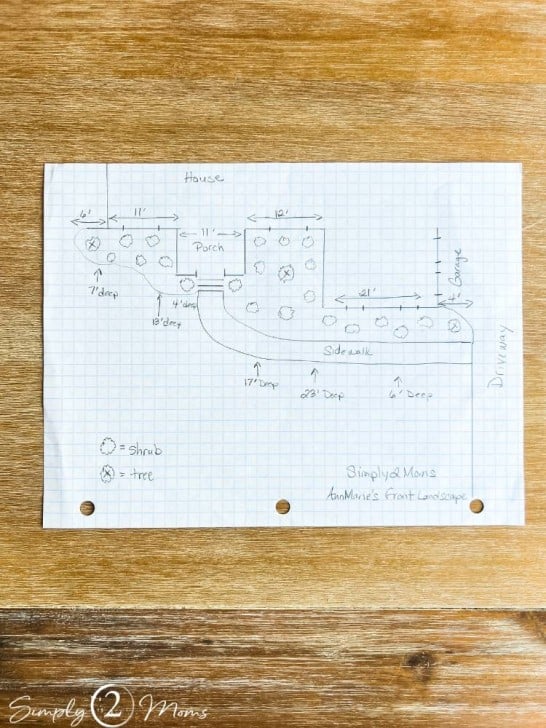 House
6' 11' 12'
11'
Porch
Garage
21' 4'
7' deep
4' deep
13' deep
Sidewalk
Driveway
17' Deep
23' Deep
6' Deep
= shrub
= tree
Simply2Moms
AnnMarie's Front Landscape
Simply 2 Moms